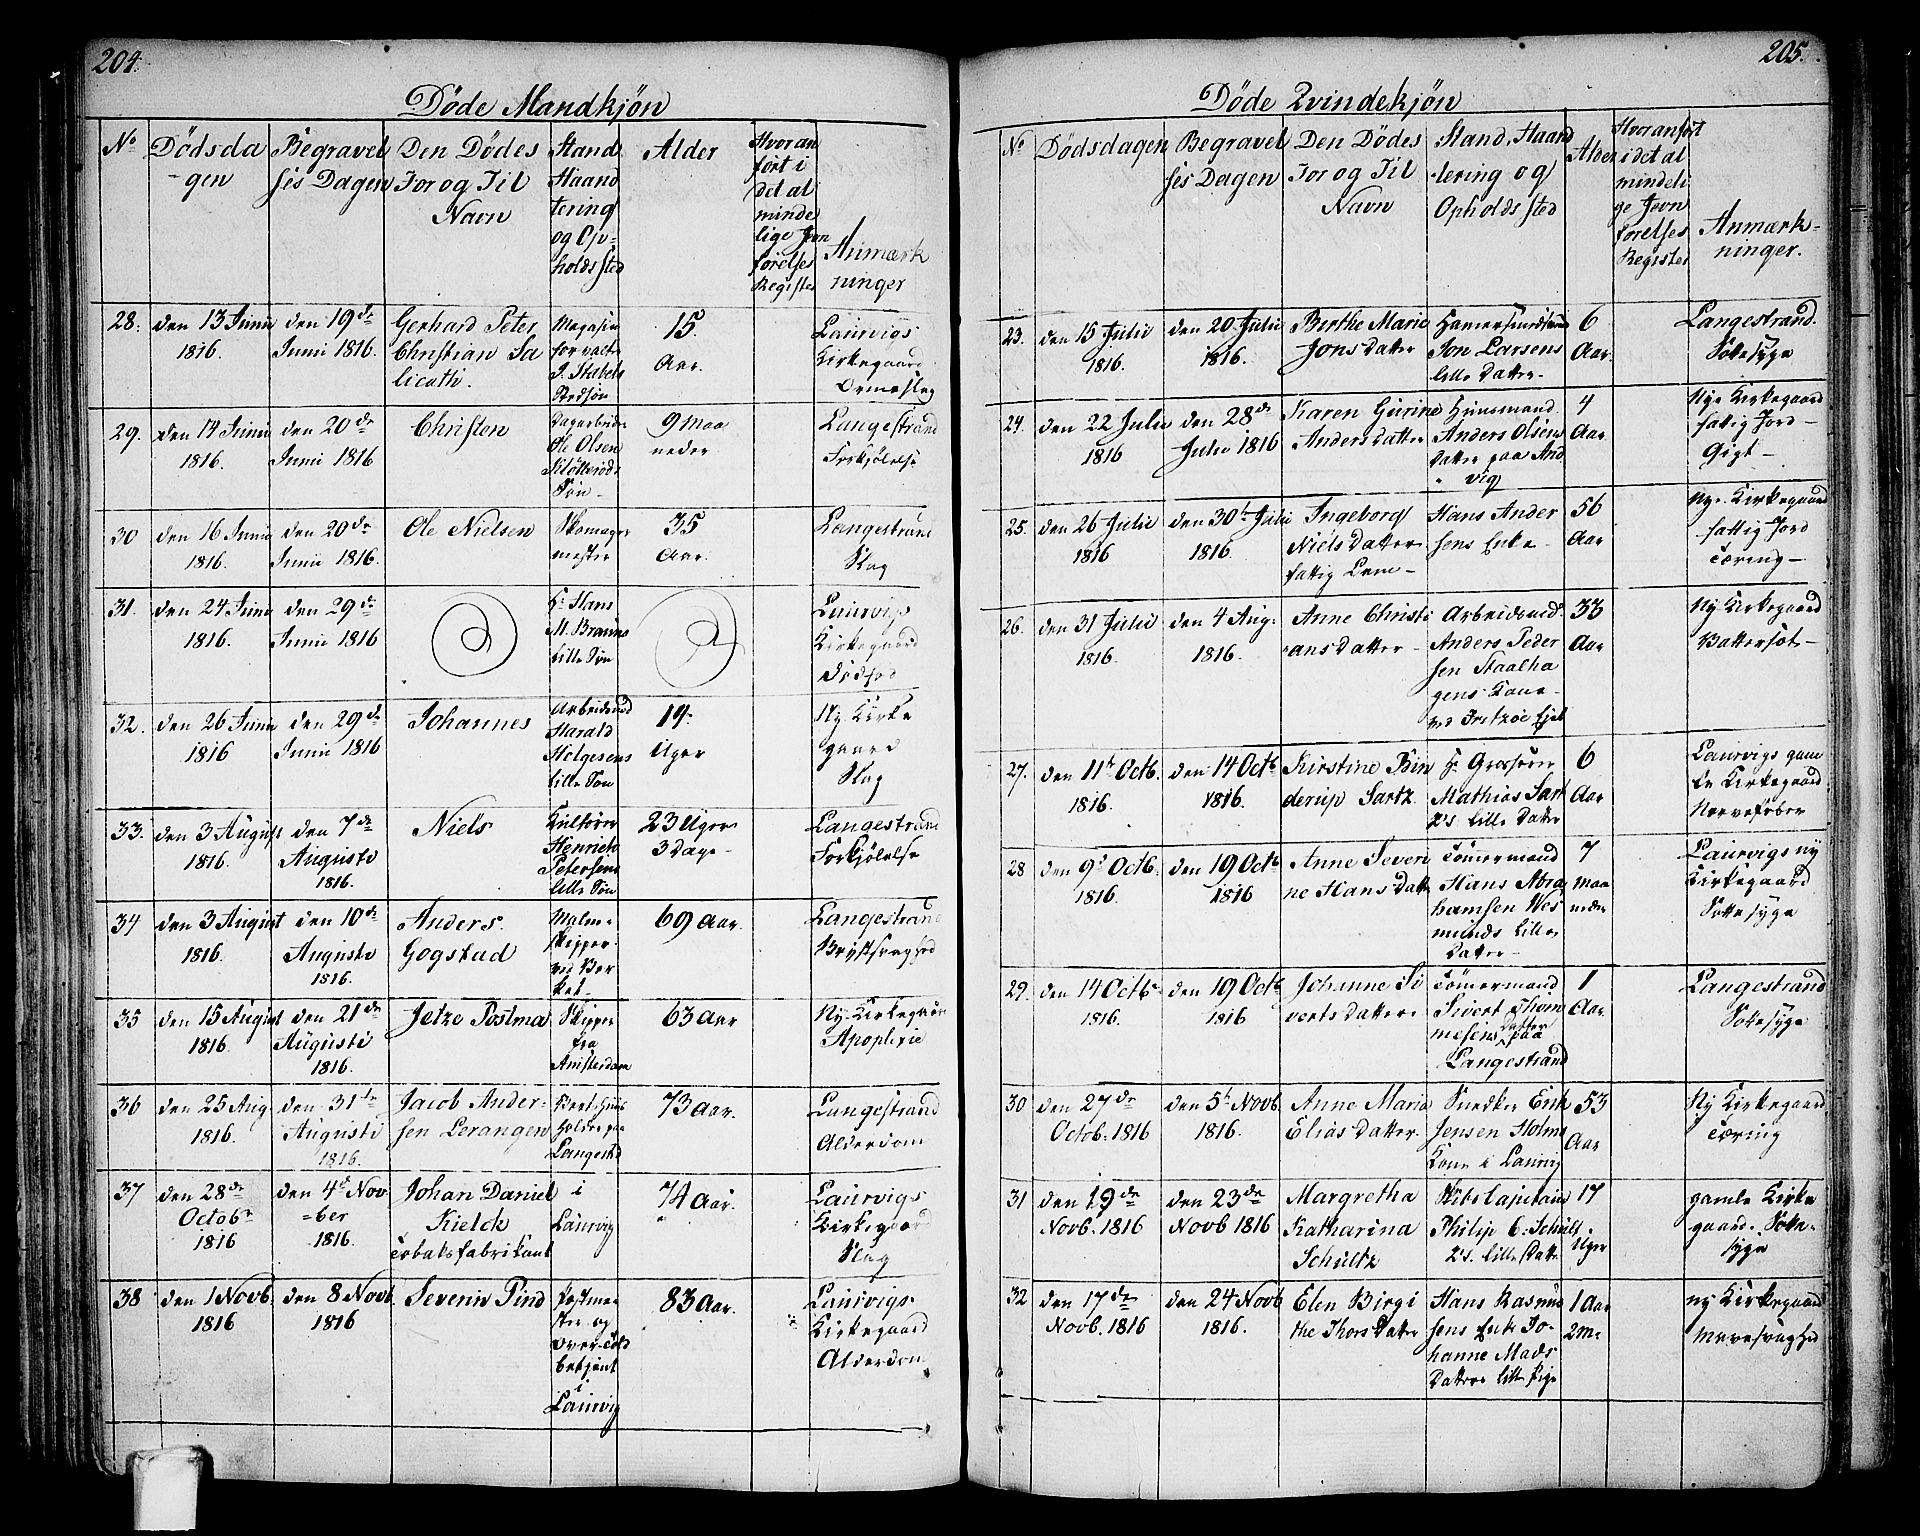 204.
Døde Mandkjøn
No
Dødsda
-gen
Begravel
ses Dagen
Den Dødes
For og Til
Navn
Stand
Haand
tering
og Op=
holdssted
Alder
Hvor an
ført i
det al
minde
lige Jevn
førelses
Register
Anmærk
ninger
28.
den 13 Junii
1816.
den 19de
Junii 1816.
Gerhard Peter
Christian Sa
licath.
Magasin
forvalter
15.
Aar.
Laurvigs
Kirkegaard
29.
den 14 Junii
1816.
den 20de
Junii 1816
Christen
Dagarbeider
Ole Olsen
Søn-
9 maa
neder
Langestrand
Forkjølelse
30
den 16 Junii
1816.
den 20de
Junii 1816.
Ole Nielsen
Skomager
mester
35
Aar.
Langestrand
Slag
31.
den 24 Junii
1816.
den 29de
Junii 1816
Hr. Hans
M. Bruuns
lille Søn
Laurvigs
Kirkegaard
Dødfød
32.
den 26 Junii
1816
den 29de
Junii 1816
Johannes
Arbeidsmd
Harald
Helgesens
lille Søn
19.
Uger
Ny Kirke
gaard
Slag
33.
den 3 August
1816.
den 7de
Augusti
1816.
Niels
Henrich
Petersens
lille Søn
23 Uger
3 Dage-
Langestrand
Forkjølelse
34
den 3 August
1816.
den 10de
Augusti
1816.
Anders
Gogstad
Malm=
skipper
ved Ver
ket-
69 Aar.
Langestrand
Brystsvaghed
35
den 15 August
1816.
den 21de
Augusti
1816.
Jetze Postma
Skipper
fra
Amsterdam
63 Aar
Ny Kirkegaard
Apoplexie
36
den 25 Aug
1816.
den 31te
Augusti
1816.
Jacob Ander-
sen Lerangen
Langestrd
73 Aar.
Langestrand
Alderdom
37
den 28de
Octobr
1816
den 4de Nov
=ber
1816.
Johan Daniel
Kielck
Tobaksfabrikant
i
Laurvig
74 Aar.
Laurvigs
Kirkegaard
Slag
38
den 1 Novb.
1816
den 8 Novb.
1816
Severin Pind
Postme
ster og
Over Told
betjent
i
Laurvig
83 Aar.
Laurvigs
Kirkegaard
Alderdom
205.
Døde Qvindekjøn
No
Dødsdagen
Begravel
ses Dagen
Den Dødes
For og Til
Navn
Stand, Haand
tering og
Opholdssted
Alder
Hvor anført
i det al
mindeli
ge Jevn
førelses
Register
Anmærk-
ninger.
23.
den 15 Julii
1816.
den 20. Julii
1816.
Berthe Marie
Jons Datter
Jon Larsens
lille Datter-
6
Aar.
Langestrand.
Sottesyge
24.
den 22 Julii
1816
den 28de
Julii 1816
Karen Gurine
Anders Datter
Huusmand
Anders Olsens
Datter paa And
vig
4
Aar.
Nye Kirkegaard
fattig Jord-
Gigt-
25.
den 26 Julii
1816
den 30te Julii
1816.
Ingeborg
Niels Datter
fattig Lem-
Hans Ander
sens Enke-
56
Aar
Nye Kirkegaard
fattig Jord
Tæring-
26.
den 31 Julii
1816.
den 4 Aug:
1816.
Anne Christi
ans Datter-
Arbeidsmd.
Anders Peder
sen Staalha
gens Kone-
ved Fritzøe
33
Aar
Ny Kirkegaard
Vattersot-
27.
den 11te Octb.
1816.
den 14 Octb
1816.
Kirstine Bin
derup Sartz.
Hr. Grosserer
Mathias Sart
z's lille Datter
6
Aar
Laurvigs gam
le Kirkegaard
Nervefeber
28
den 9de Octb.
1816.
den 19 Octb
1816
Anne Severi
ne Hans Datter
Tømermand
Hans Abra
hamsen Wes
munds lille
Datter-
7
maa
neder
Laurvigs ny
Kirkegaard
Sottesyge
29.
den 14 Octbr
1816.
den 19 Octb
1816
Johanne Si
verts Datter
Tømermand
Sivert Thom
mesens Datter paa
Langestrand
1
Aar.
Langestrand
Sottesyge
30
den 27de
Octob. 1816
den 5te Novb.
1816.
Anne Maria
Elias Datter.
Snedker Erik
Jensen Holms
Kone i Laurvig
53
Aar
Ny Kirkegaard
Tæring
31
den 19de
Novb. 1816
den 23de
Novb 1816
Margretha
Katharina
Schultz
Skibs Capitain
Philip C. Schult
z's lille Datter
17
Uger
gamle Kirke
gaard. Sotte=
syge
32
den 17de
Novb. 1816
den 24 Novb
1816.
Elen Birgi
the Thors Datter
Hans Rasmu
sens Enke Jo-
hanne Mads
Datters lille Pige
1 Aar
2 m:
ny Kirkegaard
Mavesvaghed